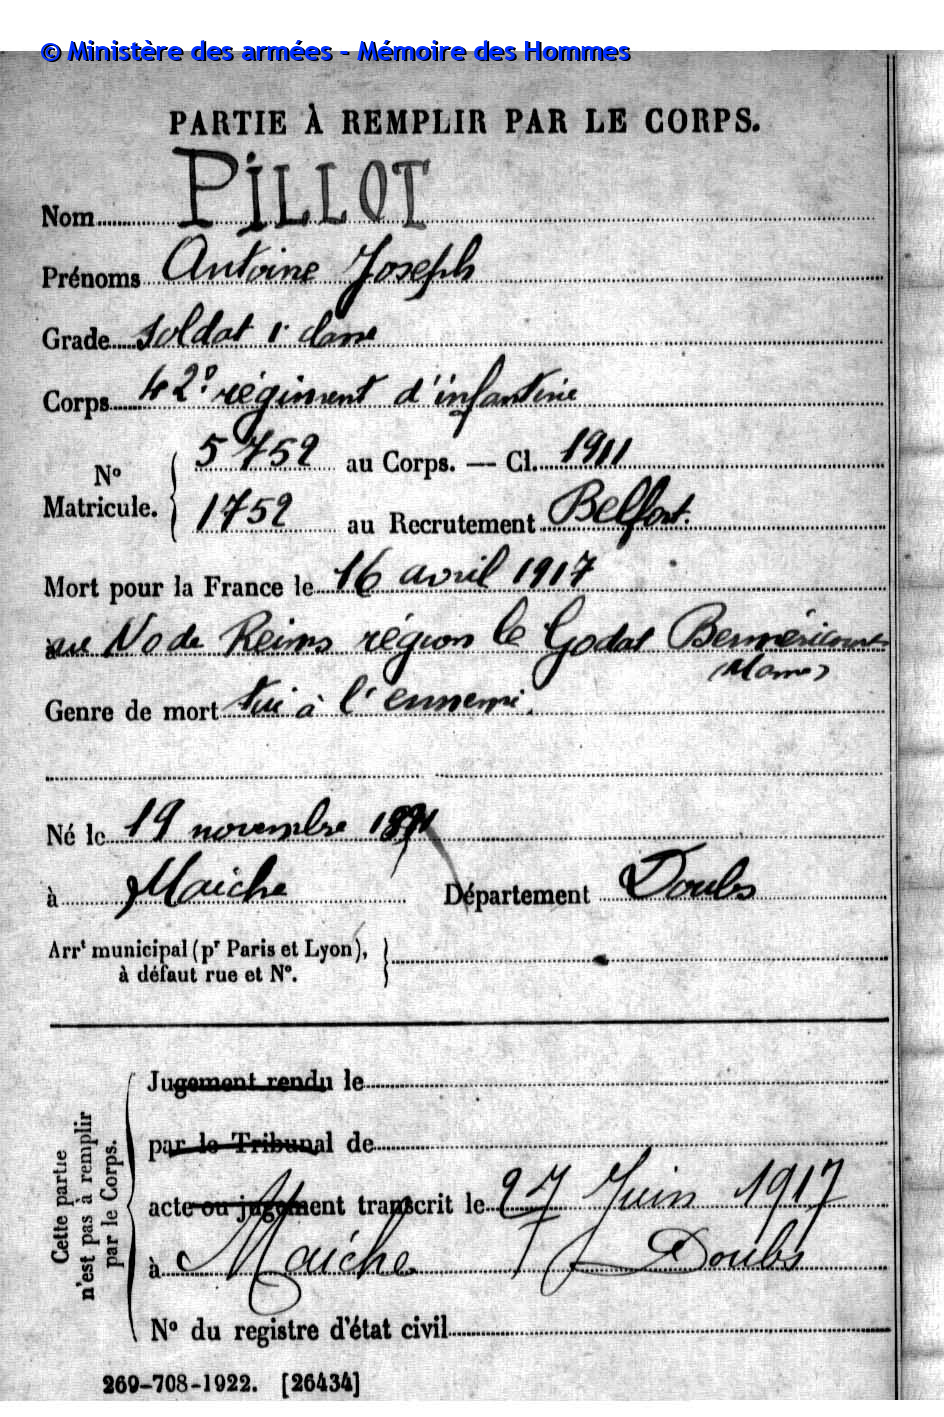 © Ministère des armées - Mémoire des Hommes
PARTIE À REMPLIR PAR LE CORPS.
Nom PILLOT
Prénoms Antoine Joseph
Grade Soldat 1e classe
Corps 42e régiment d'infanterie
N° Matricule. 5752 au Corps. — Cl. 1911
1752 au Recrutement Belfort.
Mort pour la France le 16 avril 1917
au NO de Reims région le Godat Berméricourt
(Marne)
Genre de mort tué à l'ennemi.
Né le 19 novembre 1891
à Maiche Département Doubs
Arrt municipal (pr Paris et Lyon),
à défaut rue et N°.
Cette partie
n'est pas à remplir
par le Corps.
Jugement rendu le
par le Tribunal de
acte ou jugement transcrit le 27 Juin 1917
à Maiche Doubs
N° du registre d'état civil
269-708-1922. [26434]